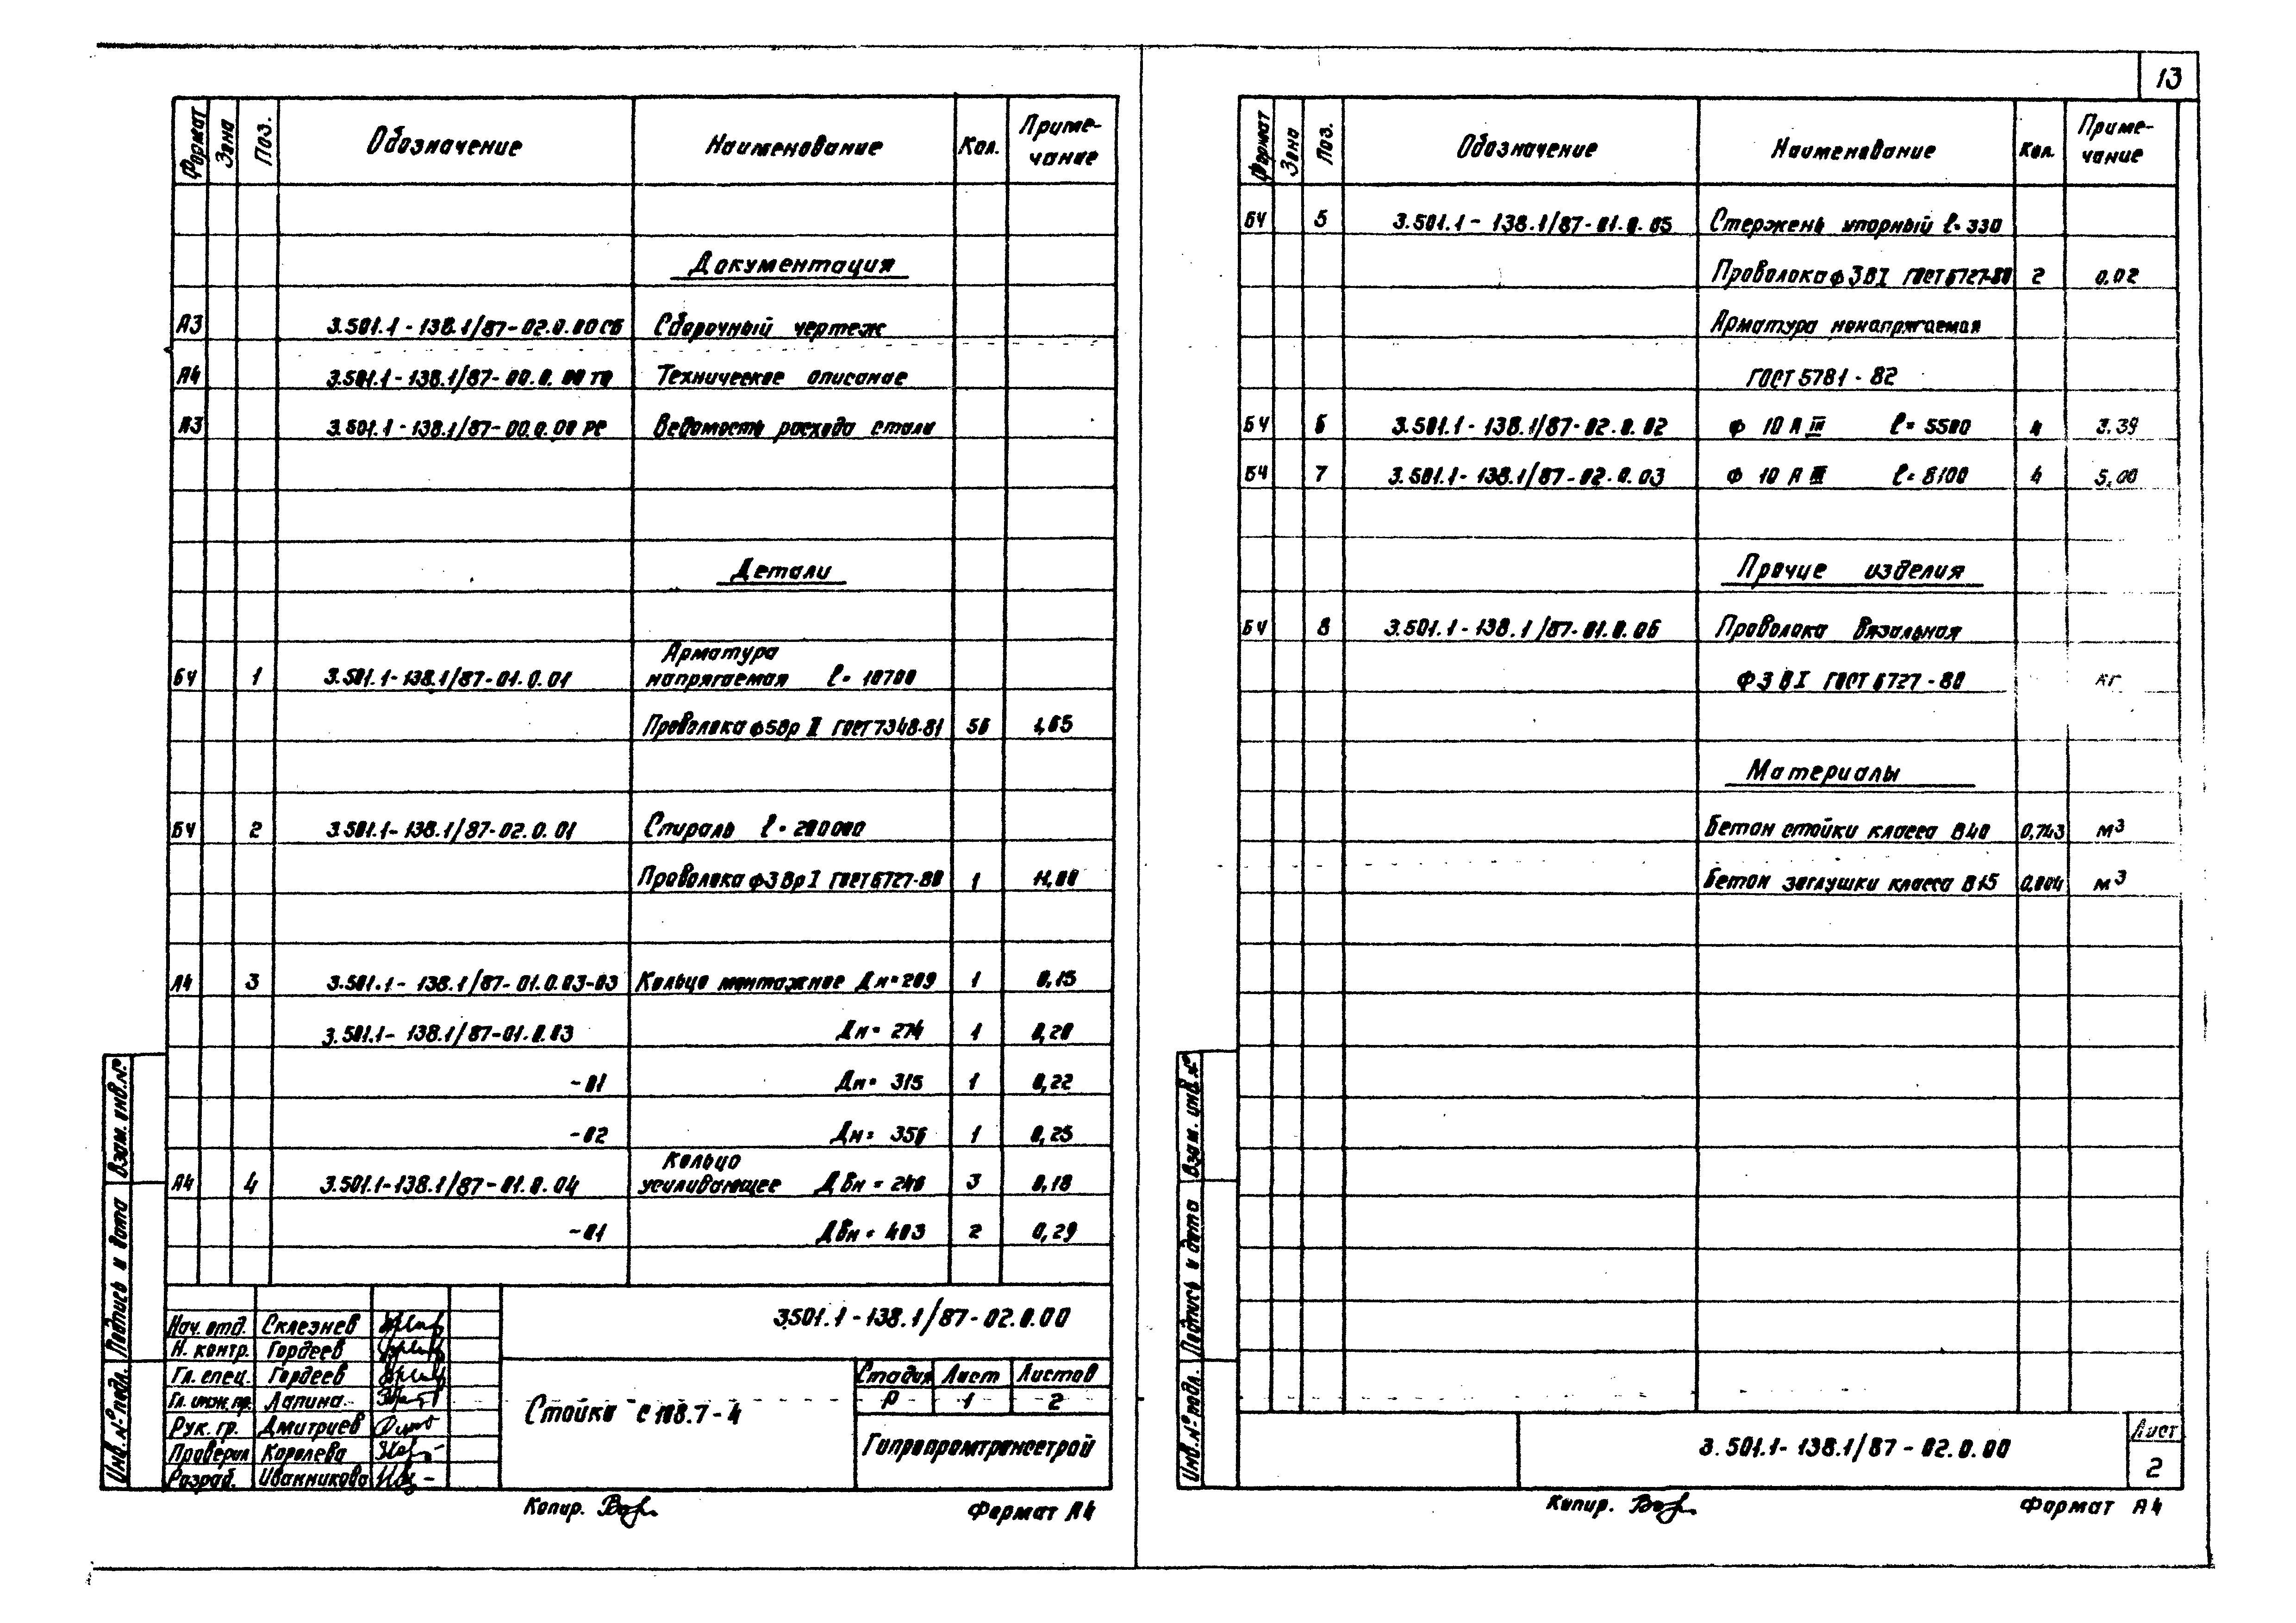 13
Формат Зона Поз. Обозначение Наименование Кол. Приме-
чание
Документация
А3 3.501.1-138.1/87-02.0.00СБ Сборочный чертеж
А4 3.501.1-138.1/87-00.0.00ТО Техническое описание
А3 3.501.1-138.1/87-00.0.00 РС Ведомость расхода стали
Детали
Арматура
БЧ 1 3.501.1-138.1/87-01.0.01 напрягаемая ℓ=10700
Проволока ф5Вр II ГОСТ 7348-81 56 1,65
БЧ 2 3.501.1-138.1/87-02.0.01 Спираль ℓ=200000
Проволока ф3Вр I ГОСТ 6727-80 1 11,00
А4 3 3.501.1-138.1/87-01.0.03-03 Кольцо монтажное Дн=209 1 0,15
3.501.1-138.1/87-01.0.03 Дн=274 1 0,20
-01 Дн=315 1 0,22
-02 Дн=356 1 0,25
Кольцо
А4 4 3.501.1-138.1/87-01.0.04 усиливающее Двн=246 3 0,18
-01 Двн=403 2 0,29
Взам. инв.№
Подпись и дата
Инв.№ подл.
3.501.1-138.1/87-02.0.00
Нач. отд. Склезнев
Н. контр. Гордеев
Гл. спец. Гордеев
Гл. инж. пр. Лапина
Рук. гр. Дмитриев
Проверил Королева
Разраб. Иванникова
Стойка С 108.7-4
Стадия Лист Листов
Р 1 2
Гипропромтрансстрой
Копир. Формат А4
Формат Зона Поз. Обозначение Наименование Кол. Приме-
чание
БЧ 5 3.501.1-138.1/87-01.0.05 Стержень упорный ℓ=330
Проволока ф3ВI ГОСТ 6727-80 2 0,02
Арматура ненапрягаемая
ГОСТ 5781-82
БЧ 6 3.501.1-138.1/87-02.0.02 ф 10 А III ℓ=5500 4 3.39
БЧ 7 3.501.1-138.1/87-02.0.03 ф 10 А III ℓ=8100 4 5,00
Прочие изделия
БЧ 8 3.501.1-138.1/87-01.0.06 Проволока вязальная
ф3ВI ГОСТ 6727-80 кг
Материалы
Бетон стойки класса В40 0,743 м3
Бетон заглушки класса В15 0,004 м3
Взам. инв.№
Подпись и дата
Инв.№ подл.
3.501.1-138.1/87-02.0.00
Лист
2
Копир. Формат А4